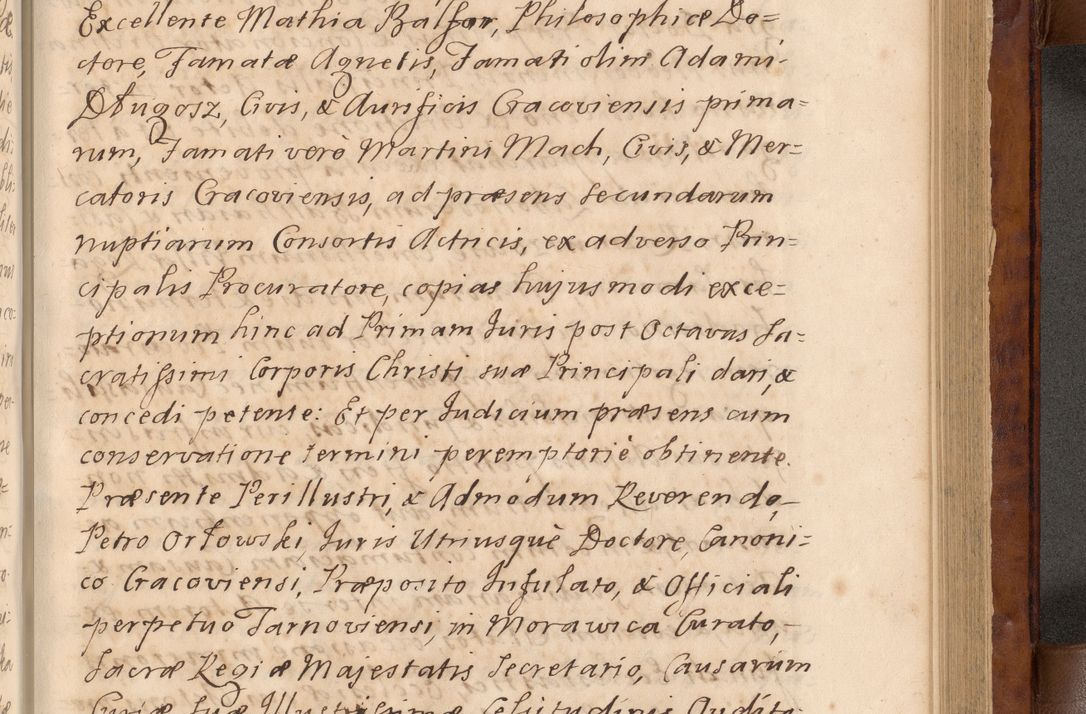 Excellente Mathia Balsor, Philosophiæ Do=
ctore, Famatæ Agnetis, Famati olim Adami
Długosz, Civis, & Aurificis Cracoviensis prima=
rum, Famati verò Martini Mach, Civis, & Mer=
catoris Cracoviensis, ad præsens secundarum
nuptiarum Consortis Actricis, ex adverso Prin=
cipalis Procuratore, copias hujusmodi exce=
ptionum hinc ad Primam Juris post Octavas Sa=
cratissimi Corporis Christi suæ Principali dari, &
concedi petente: Et per Judicium præsens cum
conservatione termini peremptoriè obtinente.
Præsente Perillustri, & Admodum Reverendo,
Petro Orłowski, Juris Utriusquè Doctore, Canoni=
co Cracoviensi, Præposito Infulato, & Officiali
perpetuo Tarnoviensi, in Morawica Curato,
Sacræ Regiæ Majestatis Secretario, Causarum
Curiæ Suæ Illustrissimæ Celsitudinis Audito